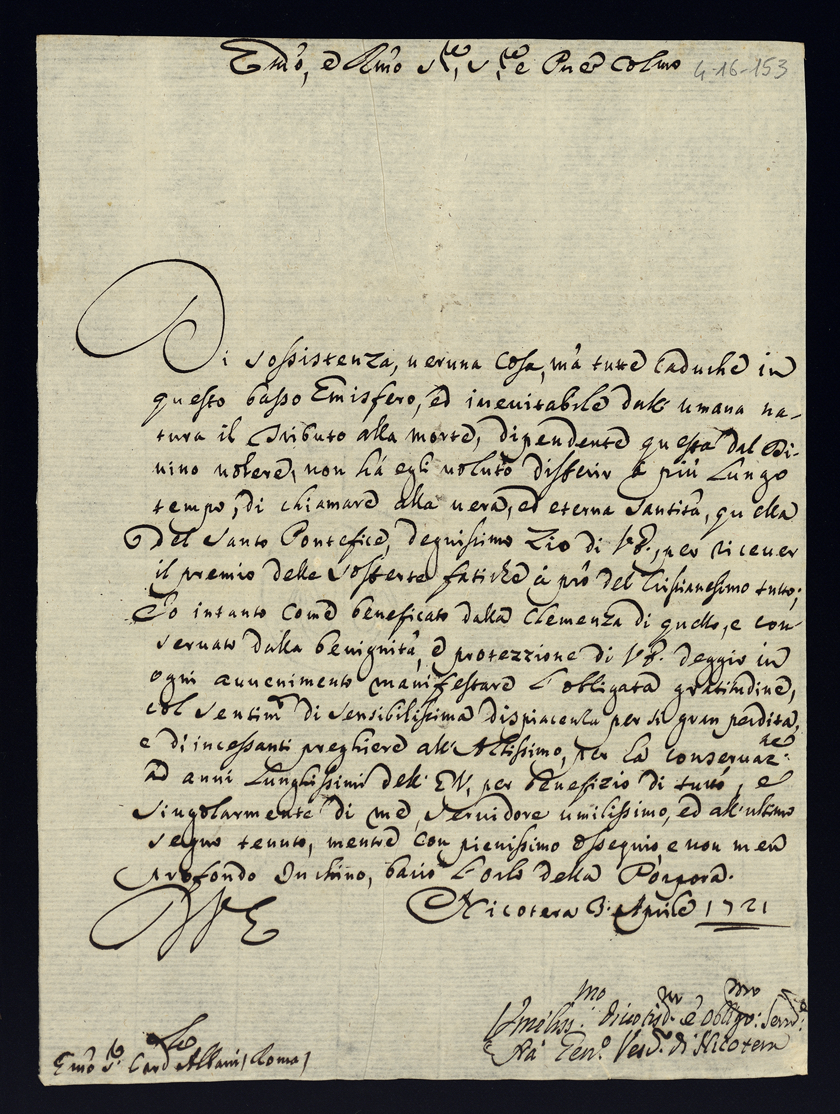 Emo, e Rmo Sre, Sre e Pne Colmo 4-16-153
Di sossistenza, ueruna cosa, mà tutte caduche in
questo basso Emisfero, ed ineuitabile dall' umana na-
tura il Tributo alla morte, dipendente questa dal Di-
uino uolere, non hà egli uoluto disferir à più lungo
tempo, di chiamare alla uera, ed eterna Santità, quella
del Santo Pontefice, degnissimo Zio di VE., per riceuer
il premio delle sofferte fatiche à prò del Cristianesimo tutto;
Io intanto come beneficato dalla Clemenza di quello, e con-
seruato dalla benignità, e protezzione di VE. deggio in
ogni auuenimento manifestare l'obligata gratitudine,
col sentimto di sensibilissima dispiacenza per si gran perdita,
e di incessanti preghiere all' Altissimo, per la conseruazne
ad anni lunghissimi dell' EV, per benefizio di tutti, e
singolarmente di me, seruidore umilissimo, ed all'ultimo
segno tenuto, mentre con pienissimo ossequio e non men
profondo Inchino, bacio l'orlo della Porpora.
DVE Nicotera 3. Aprile 1721
Umiliss:mo diuotismo e obligo:mo Serre:
Vesco di Nicotera
Emo Sr Card le Albani (Roma)